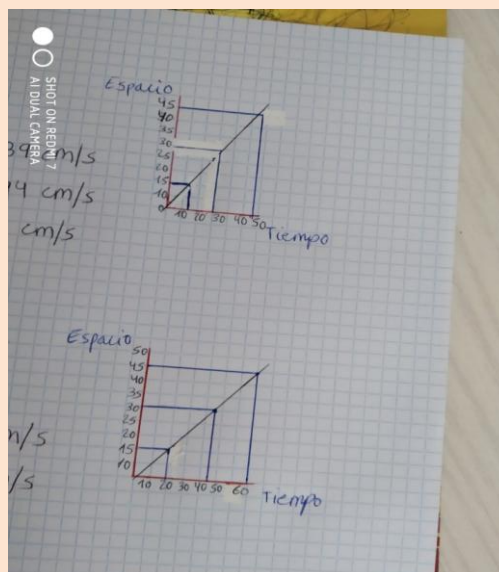 SHOT ON REDMI 7
AI DUAL CAMERA
39 cm/s
14 cm/s
cm/s
Espacio
45
40
35
30
25
20
15
10
0
10 20 30 40 50
Tiempo
Espacio
50
45
40
35
30
25
20
15
10
10 20 30 40 50 60
Tiempo
m/s
/s